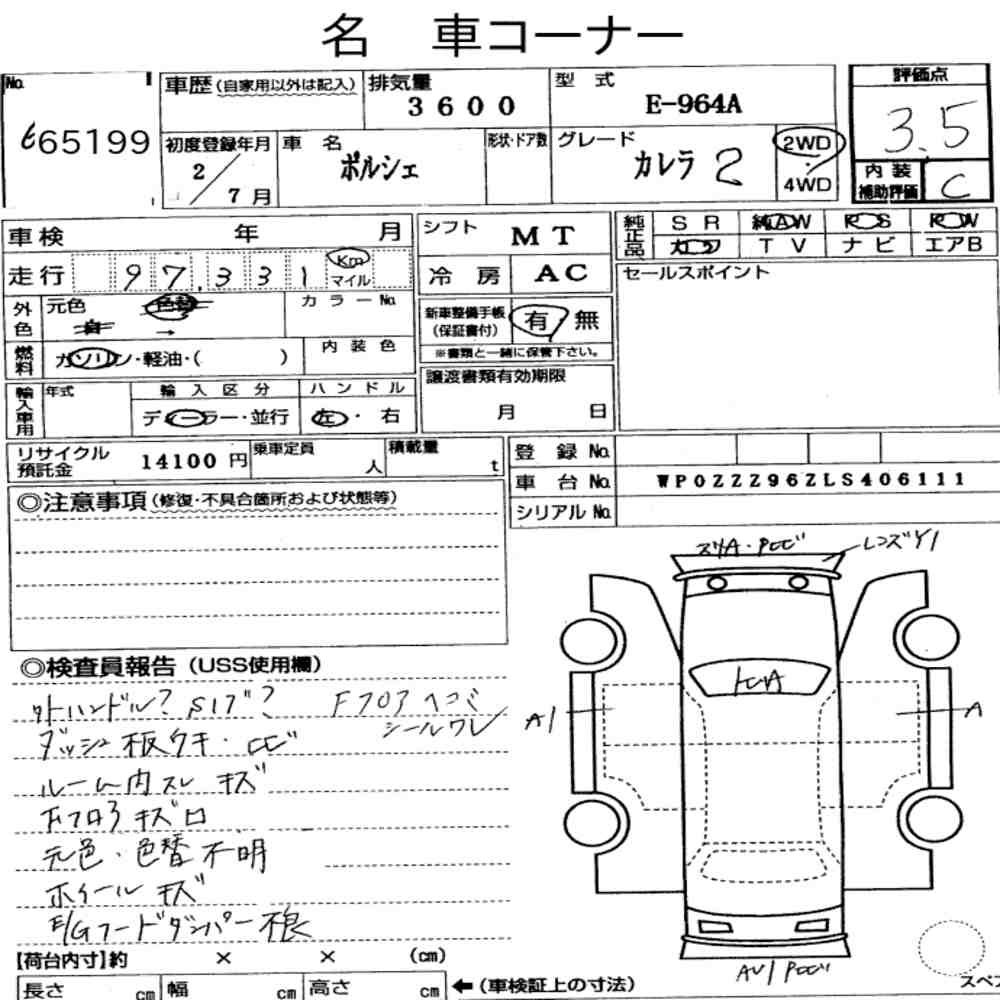 名 車コーナー
No.
65199
車歴(自家用以外は記入)
排気量
3600
型式
E-964A
評価点
3.5
初度登録年月
2/7月
車名
ポルシェ
形状・ドア数
グレード
カレラ 2
2WD
・
4WD
内装
補助評価
C
車検 年 月
シフト
MT
純正品
SR 純AW PS PW
カセ TV ナビ エアB
走行 97,331 Km マイル
冷房
AC
セールスポイント
外色
元色 色替
→
カラーNo.
新車整備手帳
(保証書付)
有 無
※書類と一緒に保管下さい。
燃料
ガソリン・軽油・( )
内装色
譲渡書類有効期限
月 日
輸入車用
年式
輸入区分
ディーラー・並行
ハンドル
左・右
リサイクル
預託金
14100 円
乗車定員
人
積載量
t
登録No.
車台No. WP0ZZZ96ZLS406111
シリアルNo.
◎注意事項(修復・不具合箇所および状態等)
レンズY1
A1
A
◎検査員報告(USS使用欄)
外ハンドル? S17"? Fフロア ヘコミ
シールワレ
ダッシュ板ウキ・
ルーム内スレ キズ
キズ
元色・色替不明
ホイールキズ
E/Gフードダンパー不良
【荷台内寸】約 × × (cm)
長さ cm 幅 cm 高さ cm
←(車検証上の寸法)